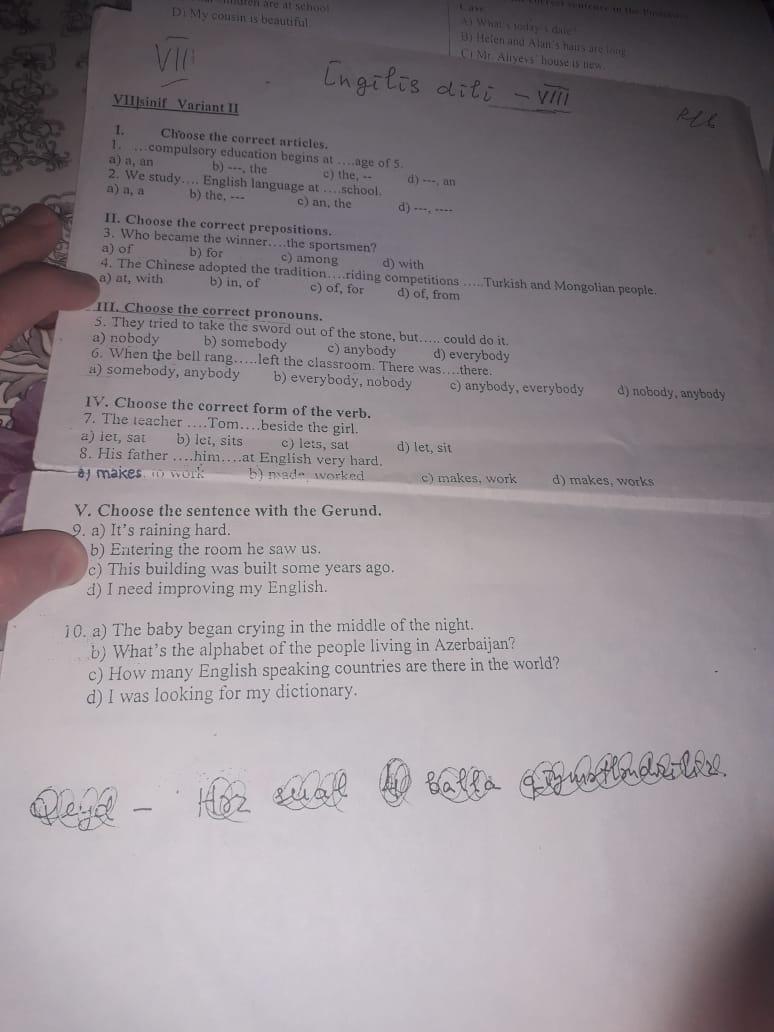 are at school
D) My cousin is beautiful
A) What's today's date?
B) Helen and Alan's hairs are long
C) Mr. Aliyevs' house is new.
VII
İngilis dili – VIII
VIIIsinif Variant II
I. Choose the correct articles.
1. …compulsory education begins at ….age of 5.
a) a, an b) ---, the c) the, -- d) ---, an
2. We study…. English language at ….school.
a) a, a b) the, --- c) an, the d) ---, ----
II. Choose the correct prepositions.
3. Who became the winner….the sportsmen?
a) of b) for c) among d) with
4. The Chinese adopted the tradition….riding competitions …..Turkish and Mongolian people.
a) at, with b) in, of c) of, for d) of, from
III. Choose the correct pronouns.
5. They tried to take the sword out of the stone, but….. could do it.
a) nobody b) somebody c) anybody d) everybody
6. When the bell rang…..left the classroom. There was….there.
a) somebody, anybody b) everybody, nobody c) anybody, everybody d) nobody, anybody
IV. Choose the correct form of the verb.
7. The teacher ….Tom….beside the girl.
a) let, sat b) let, sits c) lets, sat d) let, sit
8. His father ….him….at English very hard.
a) makes, to work b) made, worked c) makes, work d) makes, works
V. Choose the sentence with the Gerund.
9. a) It's raining hard.
b) Entering the room he saw us.
c) This building was built some years ago.
d) I need improving my English.
10. a) The baby began crying in the middle of the night.
b) What's the alphabet of the people living in Azerbaijan?
c) How many English speaking countries are there in the world?
d) I was looking for my dictionary.
Qeyd – Hər sual balla qiymətləndirilir.